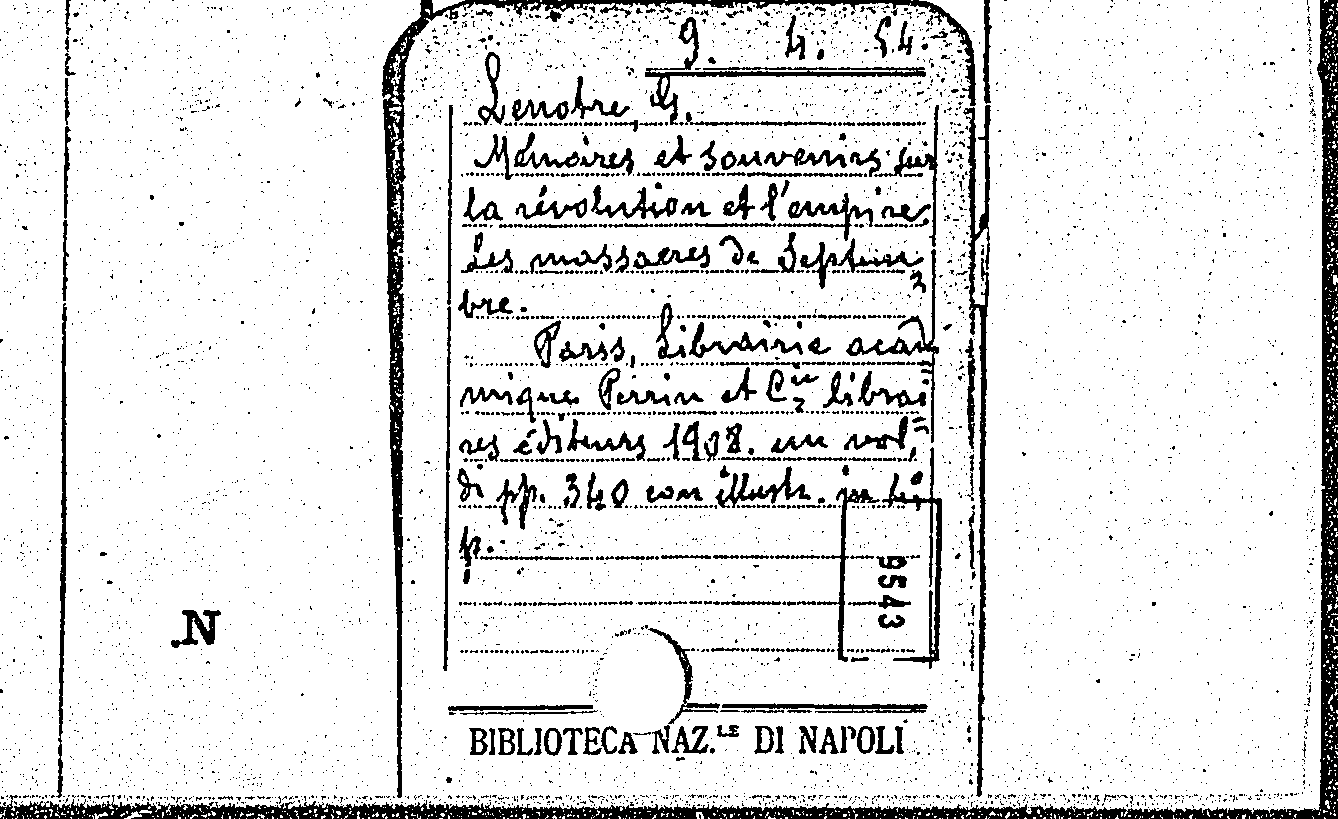 9. 4. 54.
Lenotre, G.
Mémoires et souvenirs sur
la révolution et l'empire.
Les massacres de Septem
bre.
Paris, Librairie acadé
mique Perrin et Cie librai
res éditeurs 1908. un vol.
di pp. 340 con illustr. in
p.
9543
.N
BIBLIOTECA NAZ.LE DI NAPOLI